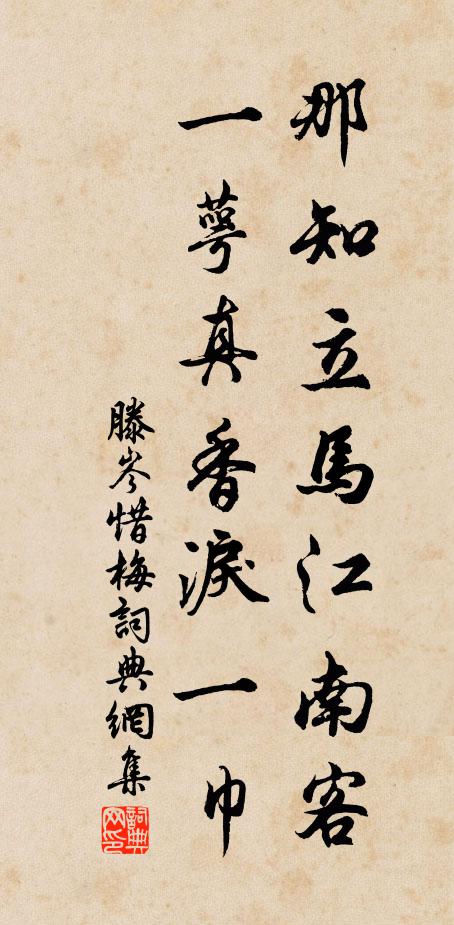 那知立馬江南客
一萼真香淚一巾
滕岑惜梅詞典網集
詞典网印